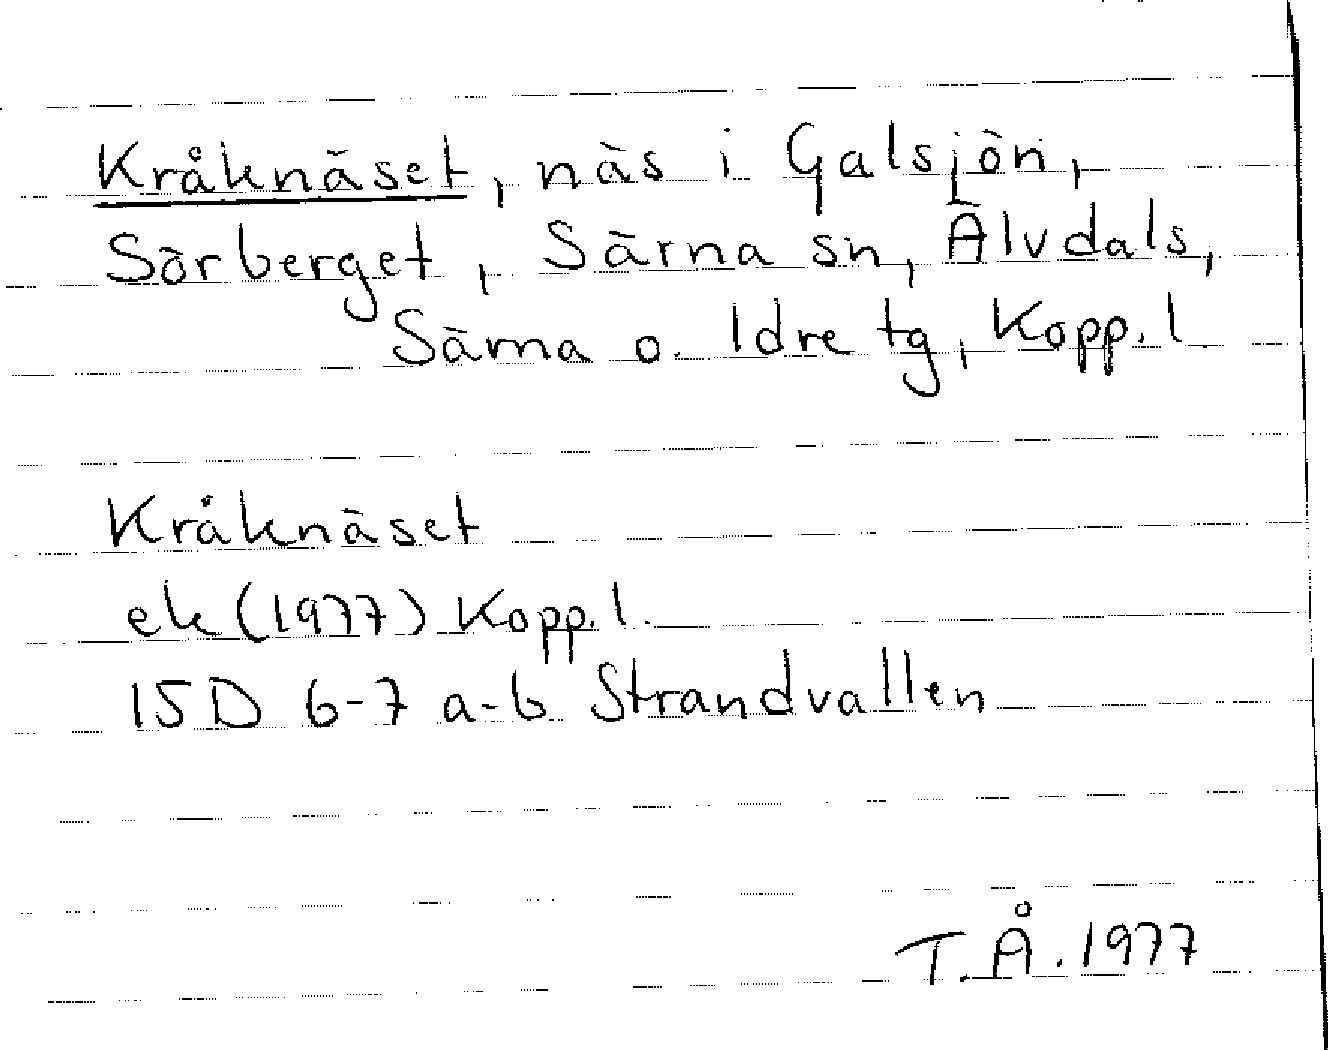 Kråknäset, näs i Galsjön,
Sörberget, Särna sn, Älvdals,
Särna o. Idre tg, Kopp. l.
Kråknäset
ek (1977) Kopp. l.
15D 6-7 a-b Strandvallen
T.Å. 1977